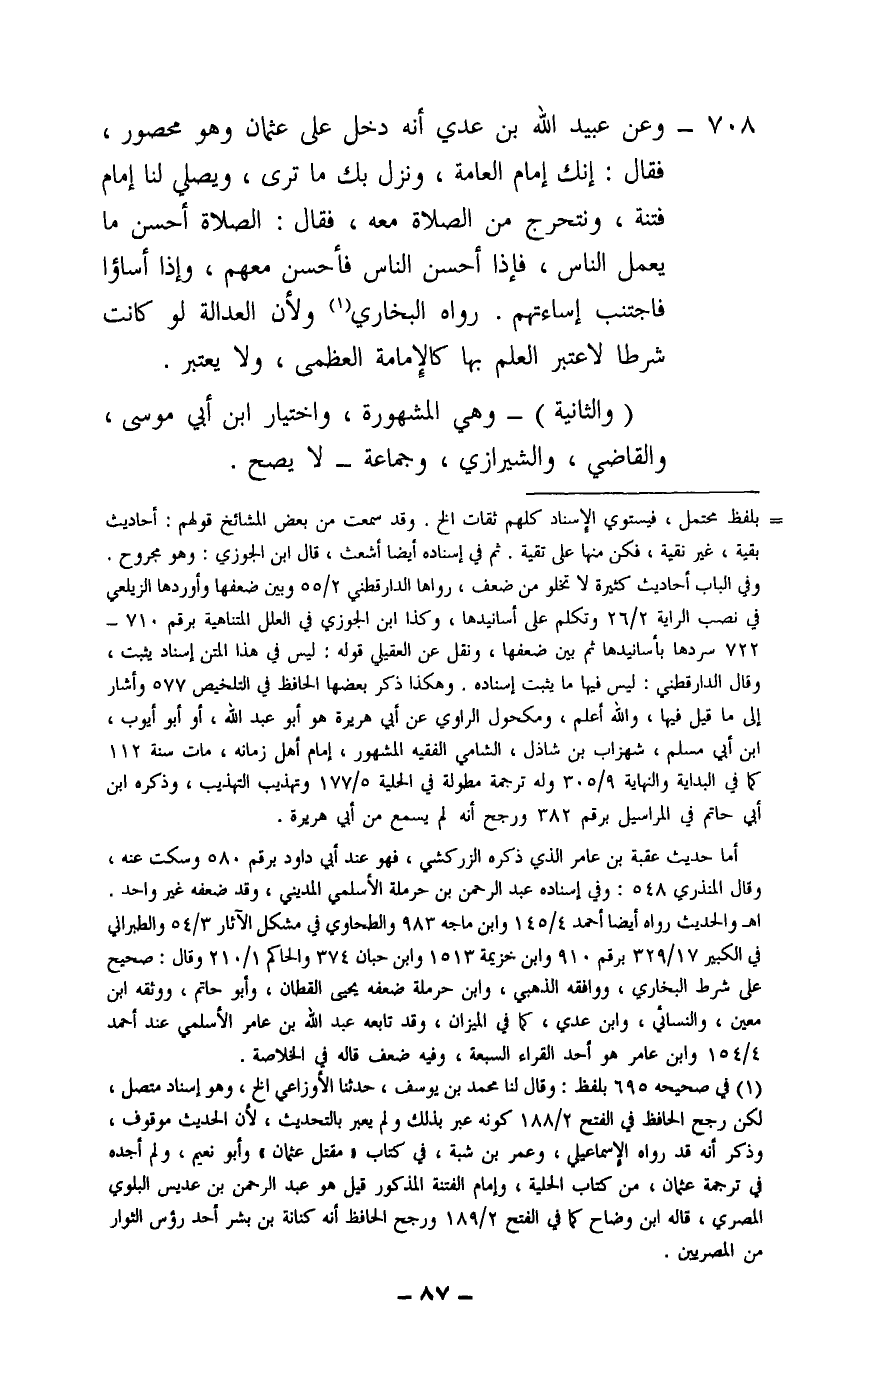 ٧٠٨ – وعن عبيد الله بن عدي أنه دخل على عثمان وهو محصور ،
فقال : إنك إمام العامة ، ونزل بك ما ترى ، ويصلي لنا إمام
فتنة ، ونتحرج من الصلاة معه ، فقال : الصلاة أحسن ما
يعمل الناس ، فإذا أحسن الناس فأحسن معهم ، وإذا أساؤا
فاجتنب إساءتهم . رواه البخاري(١) ولأن العدالة لو كانت
شرطا لاعتبر العلم بها كالإمامة العظمى ، ولا يعتبر .
( والثانية ) – وهي المشهورة ، واختيار ابن أبي موسى ،
والقاضي ، والشيرازي ، وجماعة – لا يصح .
= بلفظ محتمل ، فيستوي الإسناد كلهم ثقات الخ . وقد سمعت من بعض المشائخ قولهم : أحاديث
بقية ، غير نقية ، فكن منها على تقية . ثم في إسناده أيضا أشعث ، قال ابن الجوزي : وهو مجروح .
وفي الباب أحاديث كثيرة لا تخلو من ضعف ، رواها الدارقطني ٥٥/٢ وبين ضعفها وأوردها الزيلعي
في نصب الراية ٢٦/٢ وتكلم على أسانيدها ، وكذا ابن الجوزي في العلل المتناهية برقم ٧١٠ –
٧٢٢ سردها بأسانيدها ثم بين ضعفها ، ونقل عن العقيلي قوله : ليس في هذا المتن إسناد يثبت ،
وقال الدارقطني : ليس فيها ما يثبت إسناده . وهكذا ذكر بعضها الحافظ في التلخيص ٥٧٧ وأشار
إلى ما قيل فيها ، والله أعلم ، ومكحول الراوي عن أبي هريرة هو أبو عبد الله ، أو أبو أيوب ،
ابن أبي مسلم ، شهزاب بن شاذل ، الشامي الفقيه المشهور ، إمام أهل زمانه ، مات سنة ١١٢
كما في البداية والنهاية ٣٠٥/٩ وله ترجمة مطولة في الحلية ١٧٧/٥ وتهذيب التهذيب ، وذكره ابن
أبي حاتم في المراسيل برقم ٣٨٢ ورجح أنه لم يسمع من أبي هريرة .
أما حديث عقبة بن عامر الذي ذكره الزركشي ، فهو عند أبي داود برقم ٥٨٠ وسكت عنه ،
وقال المنذري ٥٤٨ : وفي إسناده عبد الرحمن بن حرملة الأسلمي المديني ، وقد ضعفه غير واحد .
اهـ والحديث رواه أيضا أحمد ١٤٥/٤ وابن ماجه ٩٨٣ والطحاوي في مشكل الآثار ٥٤/٣ والطبراني
في الكبير ٣٢٩/١٧ برقم ٩١٠ وابن خزيمة ١٥١٣ وابن حبان ٣٧٤ والحاكم ٢١٠/١ وقال : صحيح
على شرط البخاري ، ووافقه الذهبي ، وابن حرملة ضعفه يحيى القطان ، وأبو حاتم ، ووثقه ابن
معين ، والنسائي ، وابن عدي ، كما في الميزان ، وقد تابعه عبد الله بن عامر الأسلمي عند أحمد
١٥٤/٤ وابن عامر هو أحد القراء السبعة ، وفيه ضعف قاله في الخلاصة .
(١) في صحيحه ٦٩٥ بلفظ : وقال لنا محمد بن يوسف ، حدثنا الأوزاعي الخ ، وهو إسناد متصل ،
لكن رجح الحافظ في الفتح ١٨٨/٢ كونه عبر بذلك ولم يعبر بالتحديث ، لأن الحديث موقوف ،
وذكر أنه قد رواه الإسماعيلي ، وعمر بن شبة ، في كتاب « مقتل عثمان » وأبو نعيم ، ولم أجده
في ترجمة عثمان ، من كتاب الحلية ، وإمام الفتنة المذكور قيل هو عبد الرحمن بن عديس البلوي
المصري ، قاله ابن وضاح كما في الفتح ١٨٩/٢ ورجح الحافظ أنه كنانة بن بشر أحد رؤس الثوار
من المصريين .
– ٨٧ –